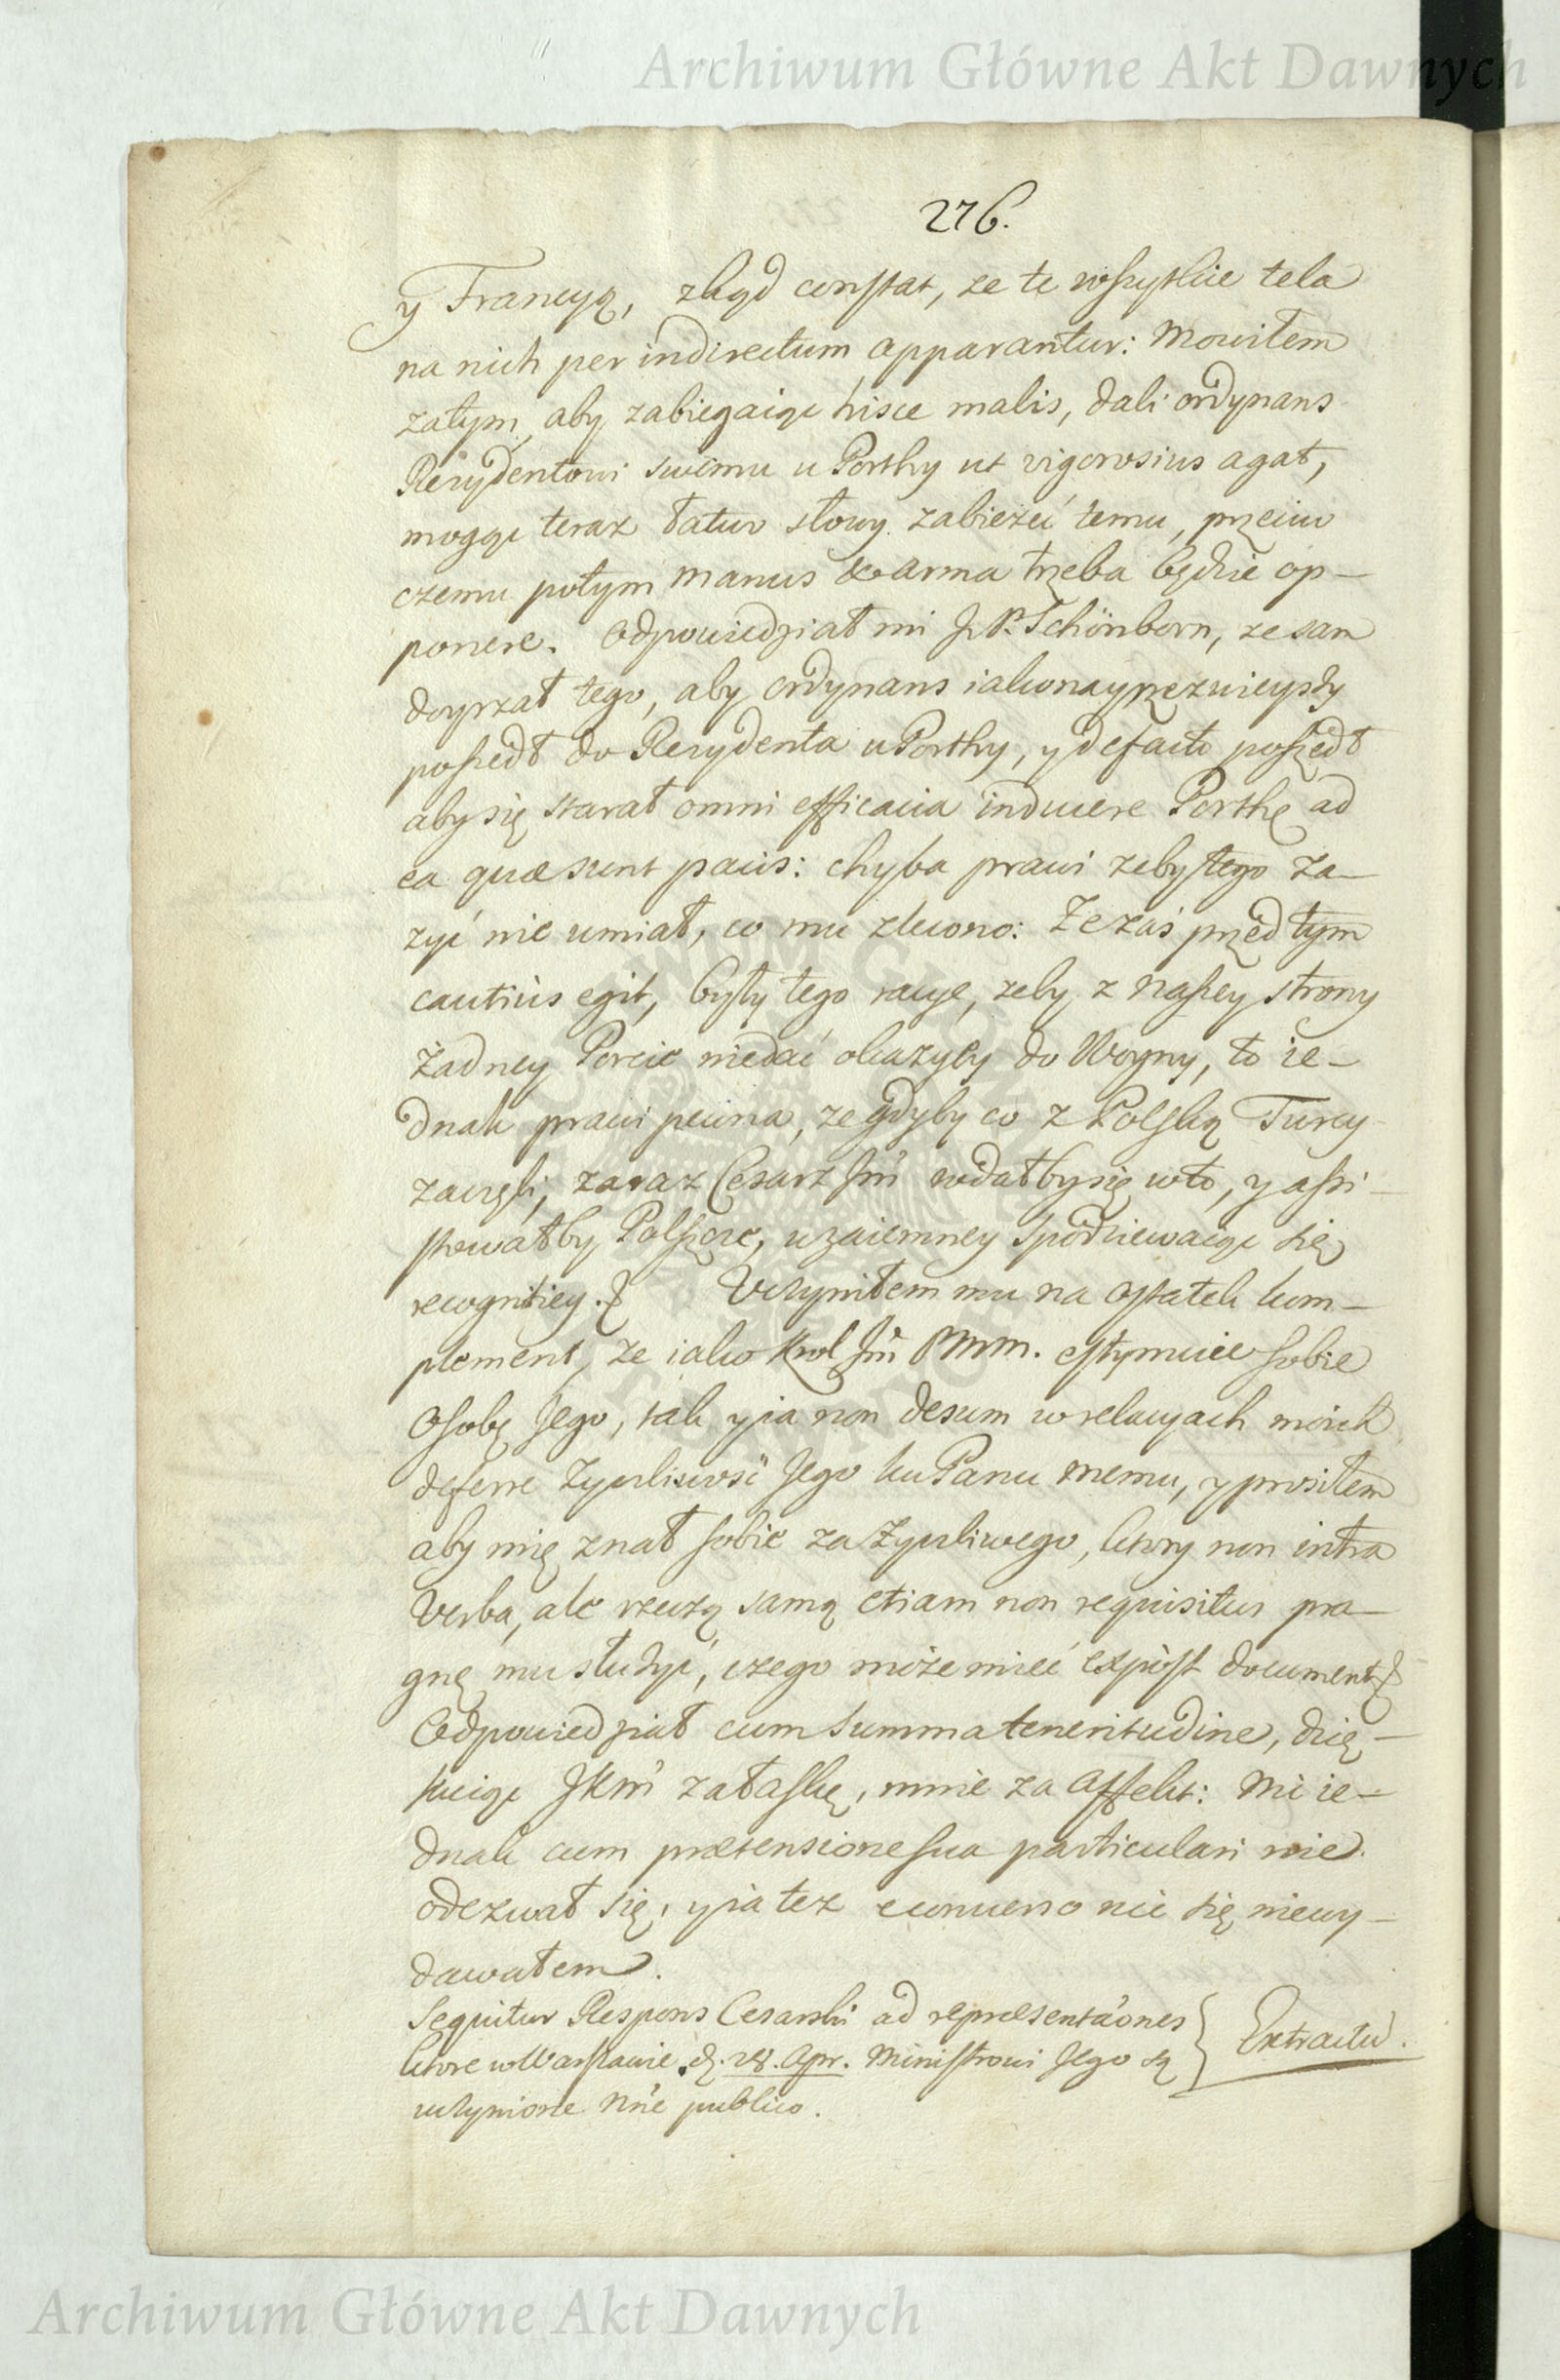 Archiwum Główne Akt Dawnych
276.
y Francyą, zkąd constat, ze te wszytkie tela
na nich per indirectum apparantur: Mowiłem
zatym, aby zabiegaiąc hisce malis, dali ordynans
Rezydentowi swemu u Porthy ut vigorosius agat,
mogąc teraz łatwo słowy zabieżeć temu, przeciw
czemu potym manus & arma trzeba będzie op-
ponere. Odpowiedział mi J. P. Schönborn, ze sam
doyrzał tego, aby ordynans iako nayprężnieyszy
poszedł do Rezydenta u Porthy, y de facto poszedł
aby się starał omni efficacia inducere Porthę ad
ea quæ sunt pacis: chyba prawi zeby tego za-
zyć nie umiał, co mu zlecono: Ze zaś przed tym
cautius egit, były tego racye, zeby z naszey strony
żadney Porcie niedać okazyey do Woyny, to ie-
dnak prawi pewna, ze gdyby co z Polską Turcy
zaczęli, zaraz Cesarz Jmć wdałby się w to, y assi-
stowałby Polszcze, wzaiemney spodziewaiąc się
recognitiey. Uczyniłem mu na ostatek kom-
plement, ze iako Krol Jmć PMM. estymuie sobie
osobę Jego, tak y ia non desum w relacyach moich
deferre życzliwość Jego ku Panu memu, y prosiłem
aby mię znał sobie za życzliwego, ktory non intra
Verba, ale rzeczą samą etiam non requisitus pra-
gnę mu służyć, czego może mieć ex post document
Odpowiedział cum summa teneritudine, dzię-
kuiąc JKMć za łaskę, mnie za affekt: Mi ie-
dnak cum prætensione sua particulari nie
odezwał się, y ia tez e converso nic się niewy-
dawałem.
Sequitur Respons Cesarski ad repræsentaões
ktore w Warszawie d. 28. Apr. Ministrowi Jego są
uczynione nñe publico.
Extractu.
Archiwum Główne Akt Dawnych